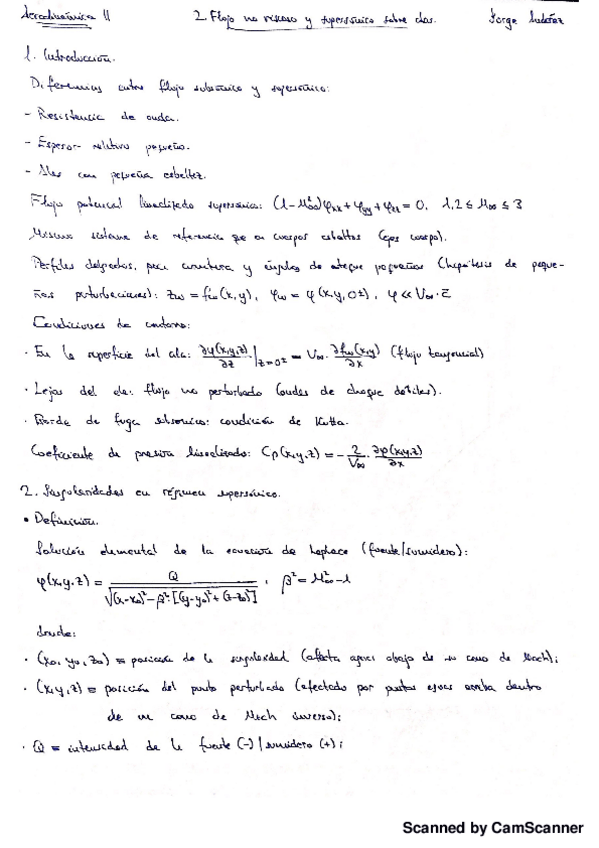 Aerodinámica II 2. Flujo no viscoso y supersónico sobre alas. Jorge
1. Introducción.
Diferencias entre flujo subsónico y supersónico:
- Resistencia de onda.
- Espesor relativo pequeño.
- Alas con pequeña esbeltez.
Flujo potencial linealizado supersónico: (1-M∞²)φxx+φyy+φzz=0, 1,2≤M∞≤3
Mismo sistema de referencia que en cuerpos esbeltos (ejes cuerpo).
Perfiles delgados, poca curvatura y ángulos de ataque pequeños (hipótesis de peque-
ñas perturbaciones): zω=fω(x,y), φω=φ(x,y,0±), φ≪V∞·c̄
Condiciones de contorno:
· En la superficie del ala: ∂φ(x,y,z)/∂z|z=0± = V∞·∂fω(x,y)/∂x (flujo tangencial)
· Lejos del ala: flujo no perturbado (ondas de choque débiles).
· Borde de fuga subsónico: condición de Kutta.
Coeficiente de presión linealizado: Cp(x,y,z)=-2/V∞·∂φ(x,y,z)/∂x
2. Singularidades en régimen supersónico.
• Definición.
Solución elemental de la ecuación de Laplace (fuente/sumidero):
φ(x,y,z)=Q/√((x-x₀)²-β²·[(y-y₀)²+(z-z₀)²]), β²=M∞²-1
donde:
· (x₀,y₀,z₀)≡posición de la singularidad (afecta aguas abajo de su cono de Mach);
· (x,y,z)≡posición del punto perturbado (afectado por puntos aguas arriba dentro
de un cono de Mach inverso);
· Q≡intensidad de la fuente (-)/sumidero (+);
Scanned by CamScanner